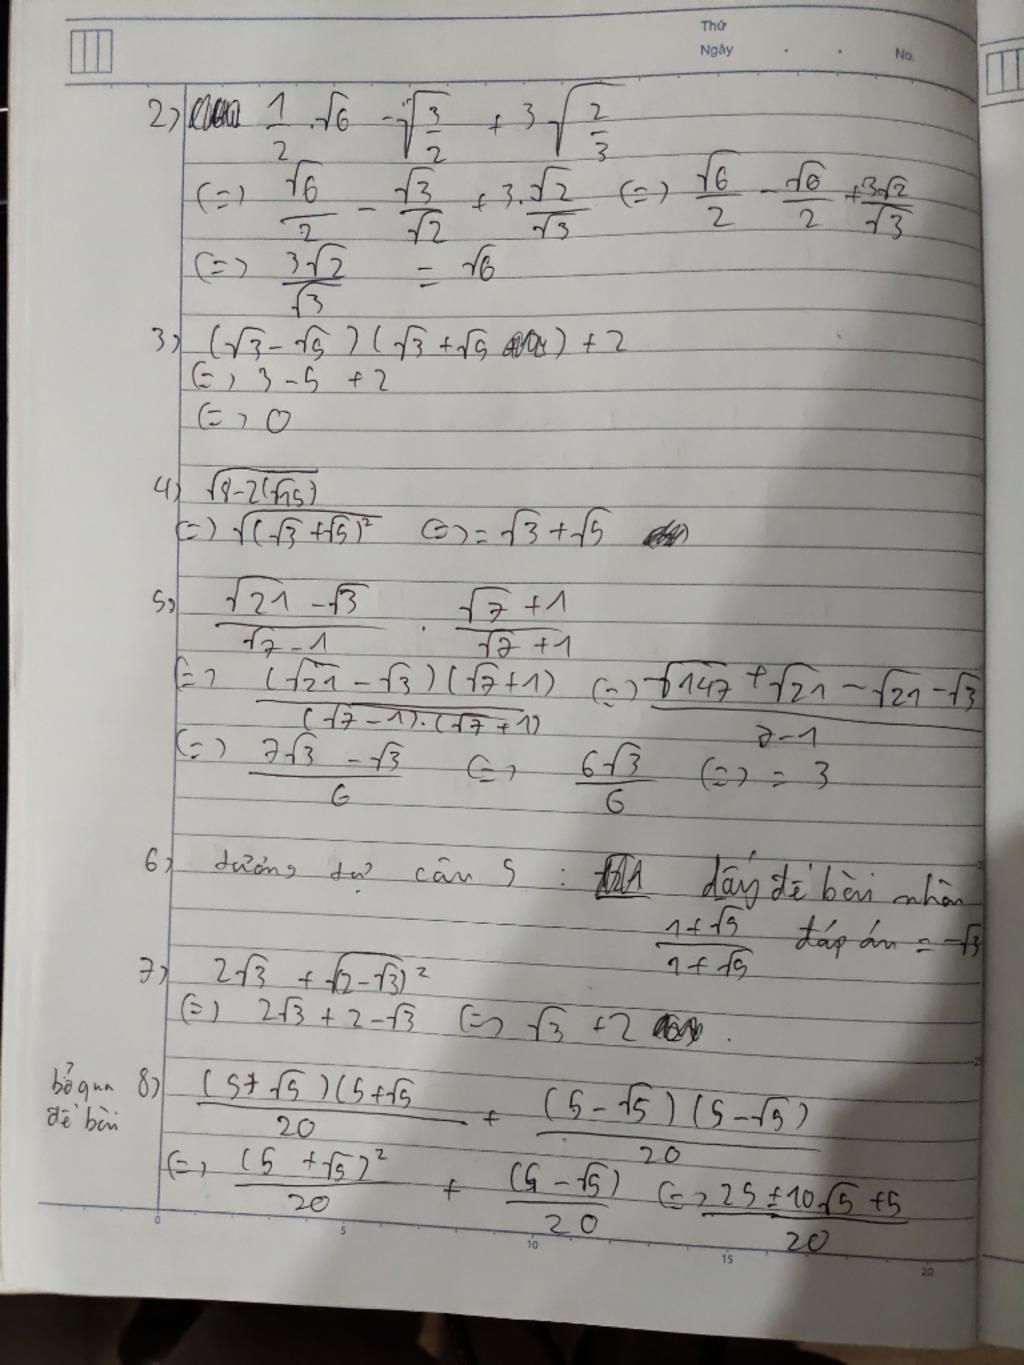 Thứ
Ngày . . No.
2) 1/2 . √6 - √(3/2) + 3√(2/3)
(=) √6/2 - √3/√2 + 3.√2/√3 (=) √6/2 - √6/2 + 3√2/√3
(=) 3√2/√3 = √6
3) (√3 - √5)(√3 + √5) + 2
(=) 3 - 5 + 2
(=) 0
4) √(8-2(√15))
(=) √(√3 + √5)² (=) = √3 + √5
5) (√21 - √3)/(√7 - 1) . (√7 + 1)/(√7 + 1)
(=) (√21 - √3)(√7+1)/((√7 - 1).(√7 + 1)) (=) (√147 + √21 - √21 - √3)/(7-1)
(=) (7√3 - √3)/6 (=) 6√3/6 (=) = 3
6) tương tự câu 5 : lấy đề bài nhân
(1+√5)/(1+√5) đáp án = -√3
7) 2√3 + √(2-√3)²
(=) 2√3 + 2 - √3 (=) √3 + 2 .
bỏ qua đề bài 8) (5+√5)(5+√5)/20 + (5-√5)(5-√5)/20
(=) (5 + √5)²/20 + (5 - √5)/20 (=) (25 + 10√5 + 5)/20
0 5 10 15 20